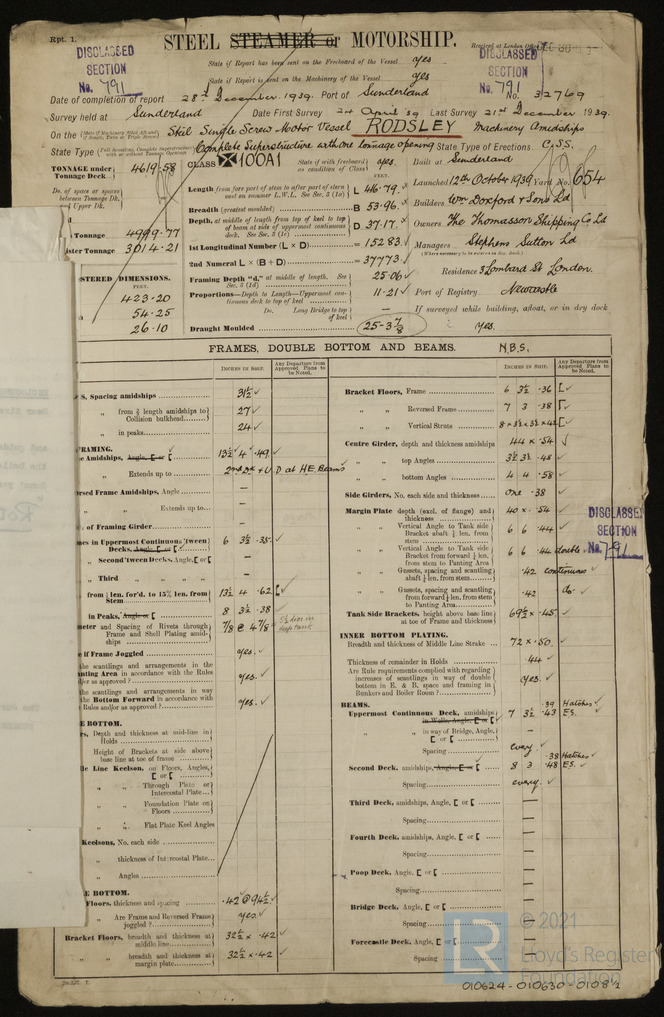 Rpt. 1.
STEEL STEAMER or MOTORSHIP.
Received at London Office
DISCLASSED
SECTION
No. 791
DISCLASSED
SECTION
No. 791
State if Report has been sent on the Freeboard of the Vessel yes
State if Report is sent on the Machinery of the Vessel yes
Date of completion of report 28th December 1939. Port of Sunderland No. 32769
Survey held at Sunderland Date First Survey 24 April 39 Last Survey 21st December 1939.
On the Steel Single Screw Motor Vessel RODSLEY Machinery Amidships
State Type Complete Superstructure with one tonnage opening State Type of Erections C.S.S.
TONNAGE under Tonnage Deck 4619.58
CLASS 100A1 State if with freeboard as condition of Class yes.
Built at Sunderland
Launched 12th October 1939 Yard No. 654
Builders Wm Doxford & Sons Ld
Owners The Thomasson Shipping Co Ld
Managers Stephens Sutton Ld
(Where necessary to be entered in Reg. Book)
Residence 3 Lombard St London.
Port of Registry Newcastle
If surveyed while building, afloat, or in dry dock
yes.
Do. of space or spaces
between Tonnage Dk.
Upper Dk.
Tonnage 4999.77
ister Tonnage 3014.21
STERED DIMENSIONS.
FEET.
423.20
54.25
26.10
FEET.
Length from fore part of stem to after part of stern post on summer L.W.L. See Sec. 3 (1a) L 416.79
Breadth (greatest moulded) B 53.96
Depth, at middle of length from top of keel to top of beam at side of uppermost continuous deck. See Sec. 3 (1c) D 37.17
1st Longitudinal Number (L × D) = 15283
2nd Numeral L × (B + D) = 37773
Framing Depth "d," at middle of length. See Sec. 3 (1d) 25.06
Proportions—Depth to Length—Uppermost continuous deck to top of keel 11.21
Do. Long Bridge to top of keel —
Draught Moulded 25-3⅞
FRAMES, DOUBLE BOTTOM AND BEAMS. N.B.S.
INCHES IN SHIP.
Any Departure from Approved Plans to be Noted.
S, Spacing amidships 31½
„ from ⅗ length amidships to Collision bulkhead 27
„ in peaks 24
FRAMING.
e Amidships, Angle, [ or [ 13½ 4 .49
„ Extends up to 2nd Dk & U D at H.E. Beams
ersed Frame Amidships, Angle —
„ „ Extends up to —
. of Framing Girder —
mes in Uppermost Continuous 'Tween Decks, Angle, [ or [ 6 3½ .35
„ Second 'Tween Decks, Angle, [ or [ —
„ Third „ „ „ —
from ⅕ len. for'd. to 15% len. from Stem 13½ 4 .62
in Peaks, Angle or [ 8 3½ .38
meter and Spacing of Rivets through Frame and Shell Plating amidships ⅞ @ 4⅞
e if Frame Joggled yes.
the scantlings and arrangements in the
nting Area in accordance with the Rules
/or as approved? yes.
the scantlings and arrangements in way
the Bottom Forward in accordance with
Rules and/or as approved? yes.
E BOTTOM.
rs, Depth and thickness at mid-line in Holds
Height of Brackets at side above base line at toe of frame
le Line Keelson, on Floors, Angles, [ or [
„ „ Through Plate or Intercostal Plate
„ „ Foundation Plate on Floors
„ „ Flat Plate Keel Angles
Keelsons, No. each side
„ thickness of Intercostal Plate
„ Angles
E BOTTOM.
Floors, thickness and spacing .42 @ 94½
„ Are Frame and Reversed Frame joggled? yes.
Bracket Floors, breadth and thickness at middle line 32½ × .42
„ „ breadth and thickness at margin plate 32½ × .42
INCHES IN SHIP.
Any Departure from Approved Plans to be Noted.
Bracket Floors, Frame 6 3½ .36
„ „ Reversed Frame 7 3 .38
„ „ Vertical Struts 8 × 3½ × 3½ × .42
Centre Girder, depth and thickness amidships 44 × .54
„ „ top Angles 3½ 3½ .48
„ „ bottom Angles 4 4 .58
Side Girders, No. each side and thickness one .38
Margin Plate depth (excl. of flange) and thickness 40 × .54
„ „ Vertical Angle to Tank side Bracket abaft ¼ len. from stem 6 6 .44
„ „ Vertical Angle to Tank side Bracket from forward ¼ len. from stem to Panting Area 6 6 .44 double
„ „ Gussets, spacing and scantling abaft ¼ len. from stem .42 continuous
„ „ Gussets, spacing and scantling from forward ¼ len. from stem to Panting Area .42 do.
Tank Side Brackets, height above base line at toe of Frame and thickness 69½ × .45
INNER BOTTOM PLATING.
Breadth and thickness of Middle Line Strake 72 × .50
Thickness of remainder in Holds .44
Are Rule requirements complied with regarding increases of scantlings in way of double bottom in E. & B. space and framing in Bunkers and Boiler Room? yes.
BEAMS.
Uppermost Continuous Deck, amidships in Wells, Angle, [ or [ 7 3½ .43 E.S.
.39 Hatches
„ „ in way of Bridge, Angle, [ or [ —
Spacing every
Second Deck, amidships, Angle, [ or [ 8 3 .48 E.S.
.38 Hatches
Spacing every.
Third Deck, amidships, Angle, [ or [ —
Spacing —
Fourth Deck, amidships, Angle, [ or [ —
Spacing —
Poop Deck, Angle, [ or [ —
Spacing —
Bridge Deck, Angle, [ or [ —
Spacing —
Forecastle Deck, Angle, [ or [
Spacing
DISCLASSED
SECTION
No. 791
LR
© 2021
Lloyd's Register
Foundation
010624-010630-0108½